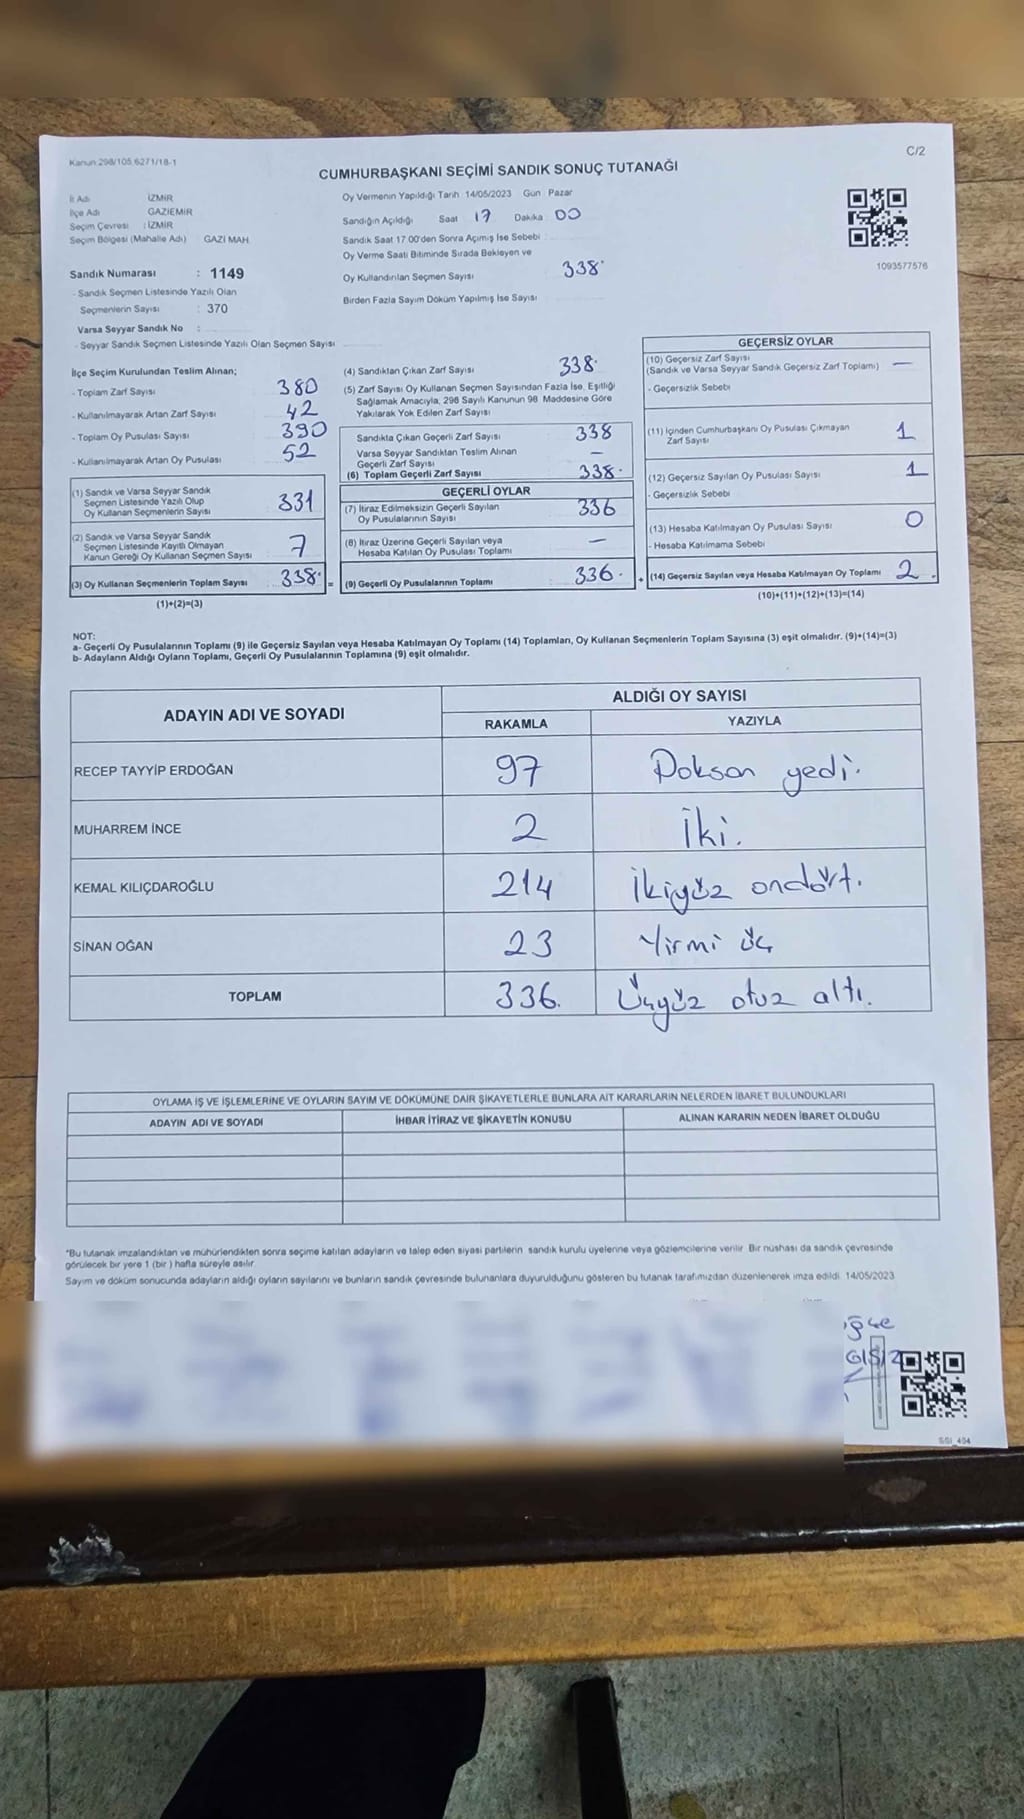 Kanun:298/105,6271/18-1
C/2
CUMHURBAŞKANI SEÇİMİ SANDIK SONUÇ TUTANAĞI
İl Adı İZMİR
İlçe Adı GAZİEMİR
Seçim Çevresi : İZMİR
Seçim Bölgesi (Mahalle Adı) GAZİ MAH.
Sandık Numarası : 1149
- Sandık Seçmen Listesinde Yazılı Olan
Seçmenlerin Sayısı : 370
Varsa Seyyar Sandık No :
- Seyyar Sandık Seçmen Listesinde Yazılı Olan Seçmen Sayısı
Oy Vermenin Yapıldığı Tarih 14/05/2023 Gün Pazar
Sandığın Açıldığı Saat 17 Dakika 00
Sandık Saat 17:00'den Sonra Açımış İse Sebebi :
Oy Verme Saati Bitiminde Sırada Bekleyen ve
Oy Kullandırılan Seçmen Sayısı 338
Birden Fazla Sayım Döküm Yapılmış İse Sayısı
1093577576
İlçe Seçim Kurulundan Teslim Alınan;
- Toplam Zarf Sayısı 380
- Kullanılmayarak Artan Zarf Sayısı 42
- Toplam Oy Pusulası Sayısı 390
- Kullanılmayarak Artan Oy Pusulası 52
(1) Sandık ve Varsa Seyyar Sandık
Seçmen Listesinde Yazılı Olup
Oy Kullanan Seçmenlerin Sayısı 331
(2) Sandık ve Varsa Seyyar Sandık
Seçmen Listesinde Kayıtlı Olmayan
Kanun Gereği Oy Kullanan Seçmen Sayısı 7
(3) Oy Kullanan Seçmenlerin Toplam Sayısı 338. =
(1)+(2)=(3)
(4) Sandıktan Çıkan Zarf Sayısı 338.
(5) Zarf Sayısı Oy Kullanan Seçmen Sayısından Fazla İse, Eşitliği
Sağlamak Amacıyla, 298 Sayılı Kanunun 98. Maddesine Göre
Yakılarak Yok Edilen Zarf Sayısı
Sandıkta Çıkan Geçerli Zarf Sayısı 338
Varsa Seyyar Sandıktan Teslim Alınan
Geçerli Zarf Sayısı —
(6) Toplam Geçerli Zarf Sayısı 338.
GEÇERLİ OYLAR
(7) İtiraz Edilmeksizin Geçerli Sayılan
Oy Pusulalarının Sayısı 336
(8) İtiraz Üzerine Geçerli Sayılan veya
Hesaba Katılan Oy Pusulası Toplamı —
(9) Geçerli Oy Pusulalarının Toplamı 336. +
GEÇERSİZ OYLAR
(10) Geçersiz Zarf Sayısı
(Sandık ve Varsa Seyyar Sandık Geçersiz Zarf Toplamı) —
- Geçersizlik Sebebi
(11) İçinden Cumhurbaşkanı Oy Pusulası Çıkmayan
Zarf Sayısı 1
(12) Geçersiz Sayılan Oy Pusulası Sayısı 1
- Geçersizlik Sebebi
(13) Hesaba Katılmayan Oy Pusulası Sayısı 0
- Hesaba Katılmama Sebebi
(14) Geçersiz Sayılan veya Hesaba Katılmayan Oy Toplamı 2.
(10)+(11)+(12)+(13)=(14)
NOT:
a- Geçerli Oy Pusulalarının Toplamı (9) ile Geçersiz Sayılan veya Hesaba Katılmayan Oy Toplamı (14) Toplamları, Oy Kullanan Seçmenlerin Toplam Sayısına (3) eşit olmalıdır. (9)+(14)=(3)
b- Adayların Aldığı Oyların Toplamı, Geçerli Oy Pusulalarının Toplamına (9) eşit olmalıdır.
ADAYIN ADI VE SOYADI
ALDIĞI OY SAYISI
RAKAMLA YAZIYLA
RECEP TAYYİP ERDOĞAN 97 Doksan yedi.
MUHARREM İNCE 2 İki.
KEMAL KILIÇDAROĞLU 214 İkiyüz ondört.
SİNAN OĞAN 23 Yirmi üç
TOPLAM 336. Üçyüz otuz altı.
OYLAMA İŞ VE İŞLEMLERİNE VE OYLARIN SAYIM VE DÖKÜMÜNE DAİR ŞİKAYETLERLE BUNLARA AİT KARARLARIN NELERDEN İBARET BULUNDUKLARI
ADAYIN ADI VE SOYADI İHBAR İTİRAZ VE ŞİKAYETİN KONUSU ALINAN KARARIN NEDEN İBARET OLDUĞU
*Bu tutanak imzalandıktan ve mühürlendikten sonra seçime katılan adayların ve talep eden siyasi partilerin sandık kurulu üyelerine veya gözlemcilerine verilir. Bir nüshası da sandık çevresinde
görülecek bir yere 1 (bir ) hafta süreyle asılır.
Sayım ve döküm sonucunda adayların aldığı oyların sayılarını ve bunların sandık çevresinde bulunanlara duyurulduğunu gösteren bu tutanak tarafımızdan düzenlenerek imza edildi. 14/05/2023